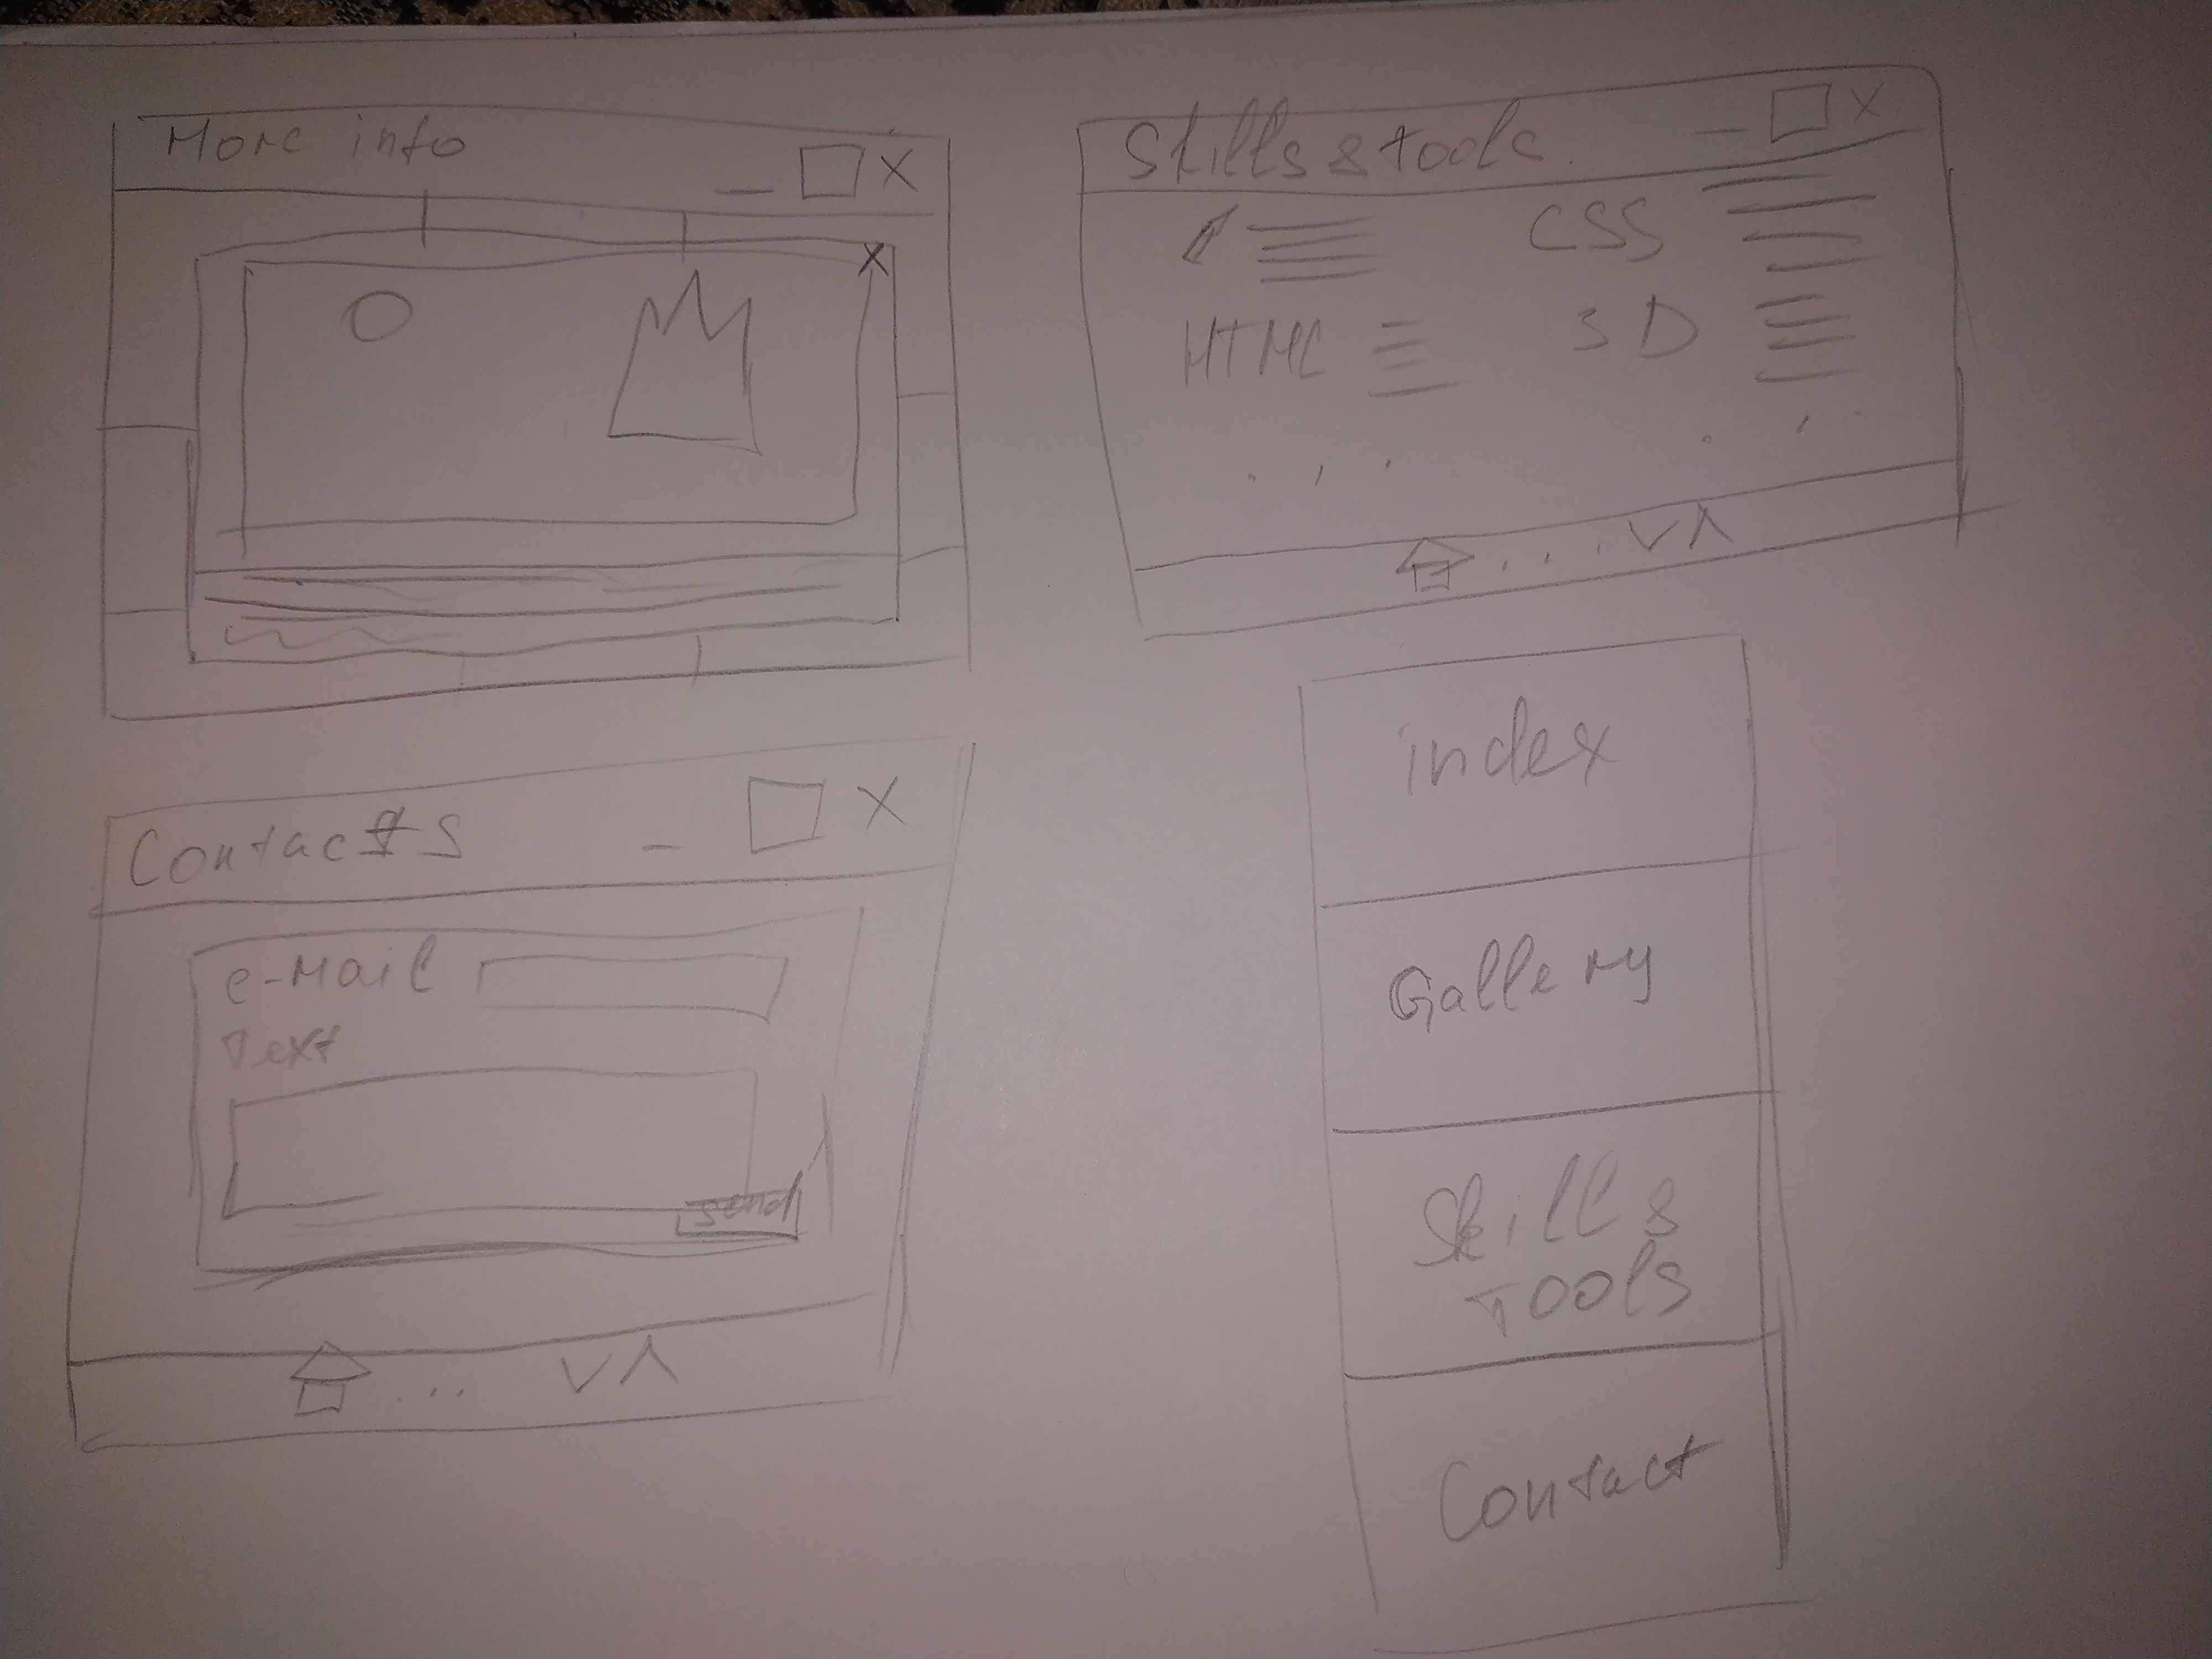 More info
X
X
Skills & tools
X
CSS
HTML
3D
Contacts
X
e-Mail
Text
send
index
Gallery
Skill &
Tools
Contact